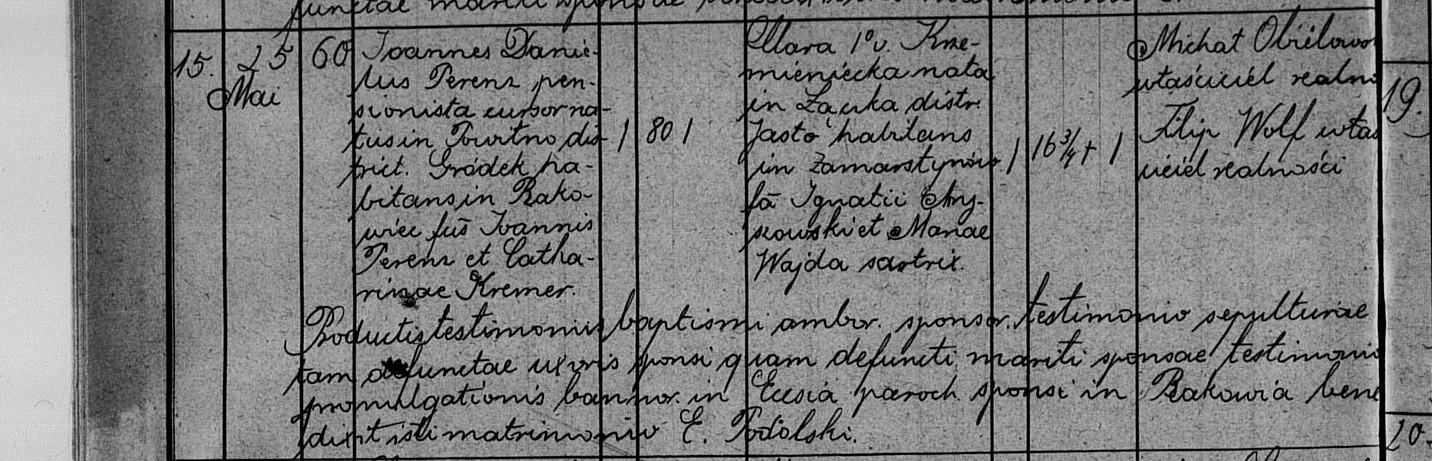 functae mariti sponsae
15. 25 Mai
60
Joannes Danie-
lus Perenz pen-
sionista cursor na-
tus in Powitno dis-
trict. Gródek ha-
bitans in Rako-
wiec fus Joannis
Perenz et Catha-
rinae Kremer.
1 80 1
Clara 1º v. Krze-
mieniecka nata
in Łącka distr.
Jasło habitans
in Zamarstynów
fa Ignatii Chy-
szowski et Mariae
Wajda sartrix.
1 16 3/4 + 1
Michał
właściciel realni
Filip Wolf właś
ciciel realności
19.
Productis testimoniis baptismi ambor. sponsor. testimonio sepulturae
tam defunctae uxoris sponsi quam defuncti mariti sponsae testimonio
promulgationis bannor. in Ecclsia paroch sponsi in Rakowia bene
dixit isti matrimonio E. Podolski.
20.